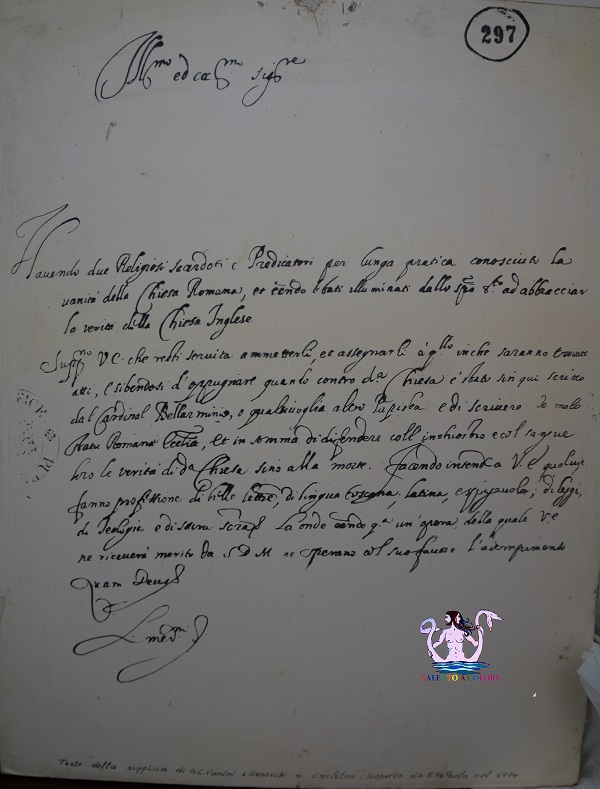 297
Ill.mo ed ca.mo sig.re
Havendo due Religiosi sacerdoti e Predicatori per lunga pratica conosciuto la
vanità della Chiesa Romana, et essendo stati illuminati dallo ad abbracciar
la verità della Chiesa Inglese
V.E. che resti servita ammetterli, et assegnarli à q.llo in che saranno trovati
atti, esibendosi d'oppugnare quando contro d.a Chiesa è stato sin qui scritto
dal Cardinal Bellarmino, o qualsivoglia altro Papista e di scrivere de malo
statu Romanæ Eccliæ, et in somma di difendere coll'inchiostro e col sangue
loro le verità di d.a Chiesa sino alla morte. Facendo intend.a V.E. qualm.te
fanno professione di belle lettere, di lingua toscana, latina, e spagnuola, di leggi,
di Teologia e di sacra La onde q.a un'opera, della quale V.E.
ne riceverà merito da S.D.M. ne sperano col suo favore l'adempimento
Quam Deus
SALENTO A COLORY
Testo della supplica di G.C. Vanini e Genocchi a Carleton. Scoperta da F. De Paola nel 1974